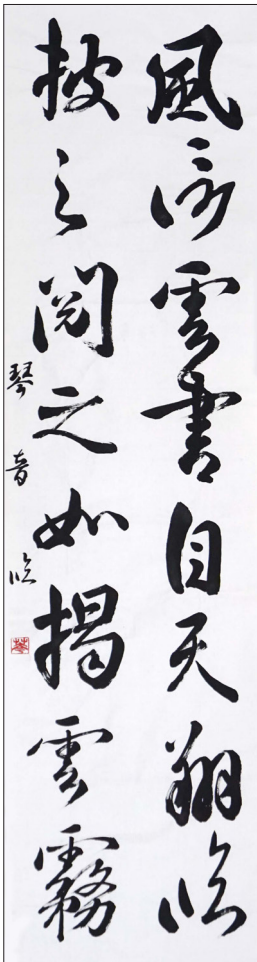 風信雲書自天翔臨
披之閱之如揭雲霧
琴音臨